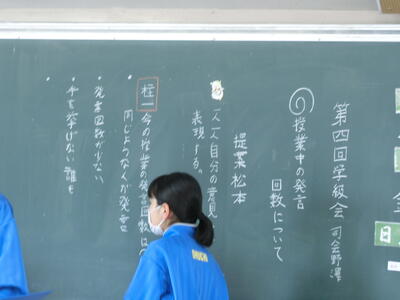 第四回学級会 司会野澤
授業中の発言
回数について
提案松本
一人一人自分の意見
表現する。
柱一 今の授業の発言回数は
同じような人が発言
・発言回数が少ない
・手を挙げない誰も
日